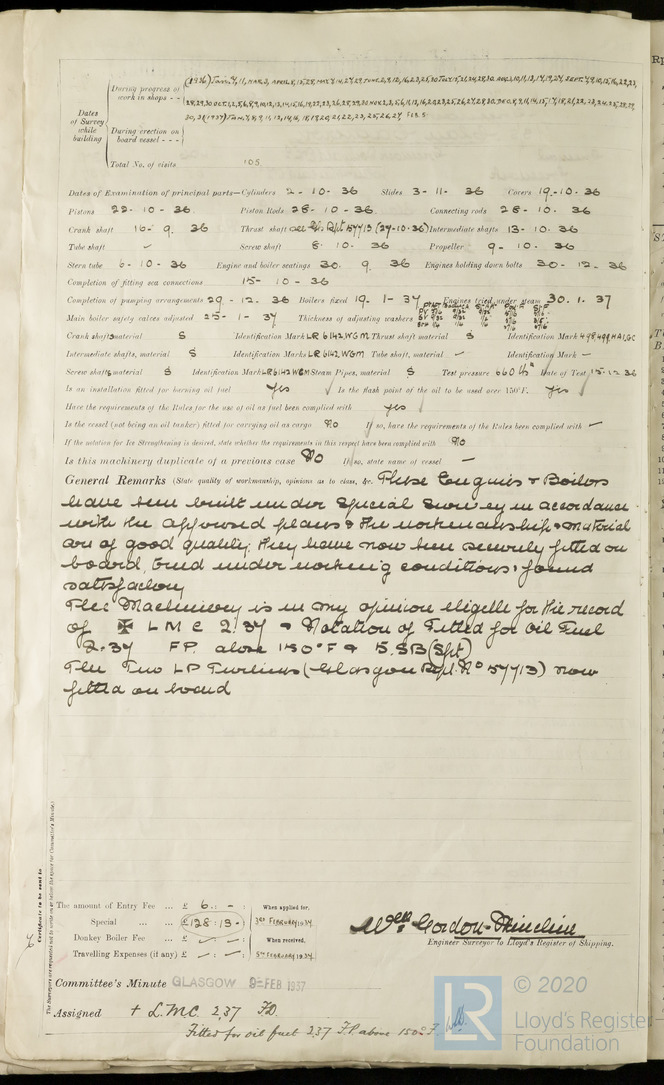 Dates of Survey while building
During progress of work in shops - -
During erection on board vessel - - -
Total No. of visits 105
Dates of Examination of principal parts—Cylinders 2-10-36 Slides 3-11-36 Covers 19-10-36
Pistons 22-10-36 Piston Rods 28-10-36 Connecting rods 28-10-36
Crank shaft 16-9-36 Thrust shaft Rpt 57713 (27-10-36) Intermediate shafts 13-10-36
Tube shaft - Screw shaft 8.10.36 Propeller 9-10-36
Stern tube 6-10-36 Engine and boiler seatings 30.9.36 Engines holding down bolts 30-12-36
Completion of fitting sea connections 15-10-36
Completion of pumping arrangements 29-12-36 Boilers fixed 19-1-37 Engines tried under steam 30.1.37
Main boiler safety valves adjusted 25-1-37 Thickness of adjusting washers
Crank shaft material S Identification Mark LR 6142 WGM Thrust shaft material S Identification Mark
Intermediate shafts, material S Identification Marks LR 6142, WGM Tube shaft, material - Identification Mark -
Screw shaft, material S Identification Mark LR 6142 WGM Steam Pipes, material S Test pressure 660 lbs Date of Test 15.12.36
Is an installation fitted for burning oil fuel yes Is the flash point of the oil to be used over 150°F. yes
Have the requirements of the Rules for the use of oil as fuel been complied with yes
Is the vessel (not being an oil tanker) fitted for carrying oil as cargo No If so, have the requirements of the Rules been complied with -
If the notation for Ice Strengthening is desired, state whether the requirements in this respect have been complied with No
Is this machinery duplicate of a previous case No If so, state name of vessel -
General Remarks (State quality of workmanship, opinions as to class, &c. These Engines & Boilers
have been built under Special Survey in accordance
with the approved plans & the workmanship & material
are of good quality; they have now been securely fitted on
board, tried under working conditions & found
satisfactory
This Machinery is in my opinion eligible for the record
of ✠ LMC 2.37 & Notation of Fitted for Oil Fuel
2-37 FP. above 150°F & 15.SB (Spt)
The Two LP Turbines (Glasgow Rpt. No 57713) now
fitted on board
Certificate to be sent to
The amount of Entry Fee ... £ 6 : - : When applied for,
Special ... ... £ 128 : 13 - 3rd FEBRUARY 1937
Donkey Boiler Fee ... £ - : - : When received,
Travelling Expenses (if any) £ - : - : 5th FEBRUARY 1937
Engineer Surveyor to Lloyd's Register of Shipping.
Committee's Minute GLASGOW 9-FEB 1937
Assigned + L.M.C. 2,37 F.D.
Fitted for oil fuel 2,37 F.P. above 150°F.
LR
© 2020
Lloyd's Register
Foundation